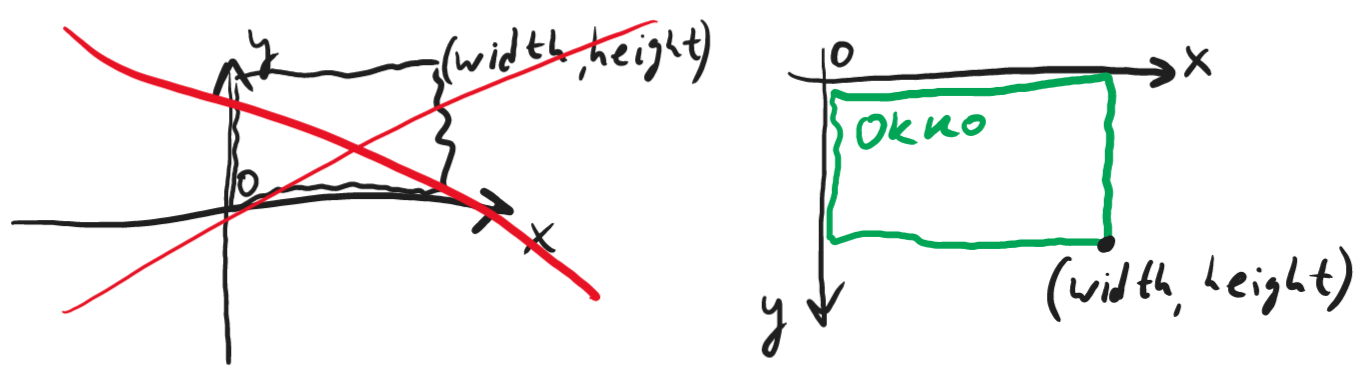 y
(width, height)
0
x
0
x
Окно
(width, height)
y